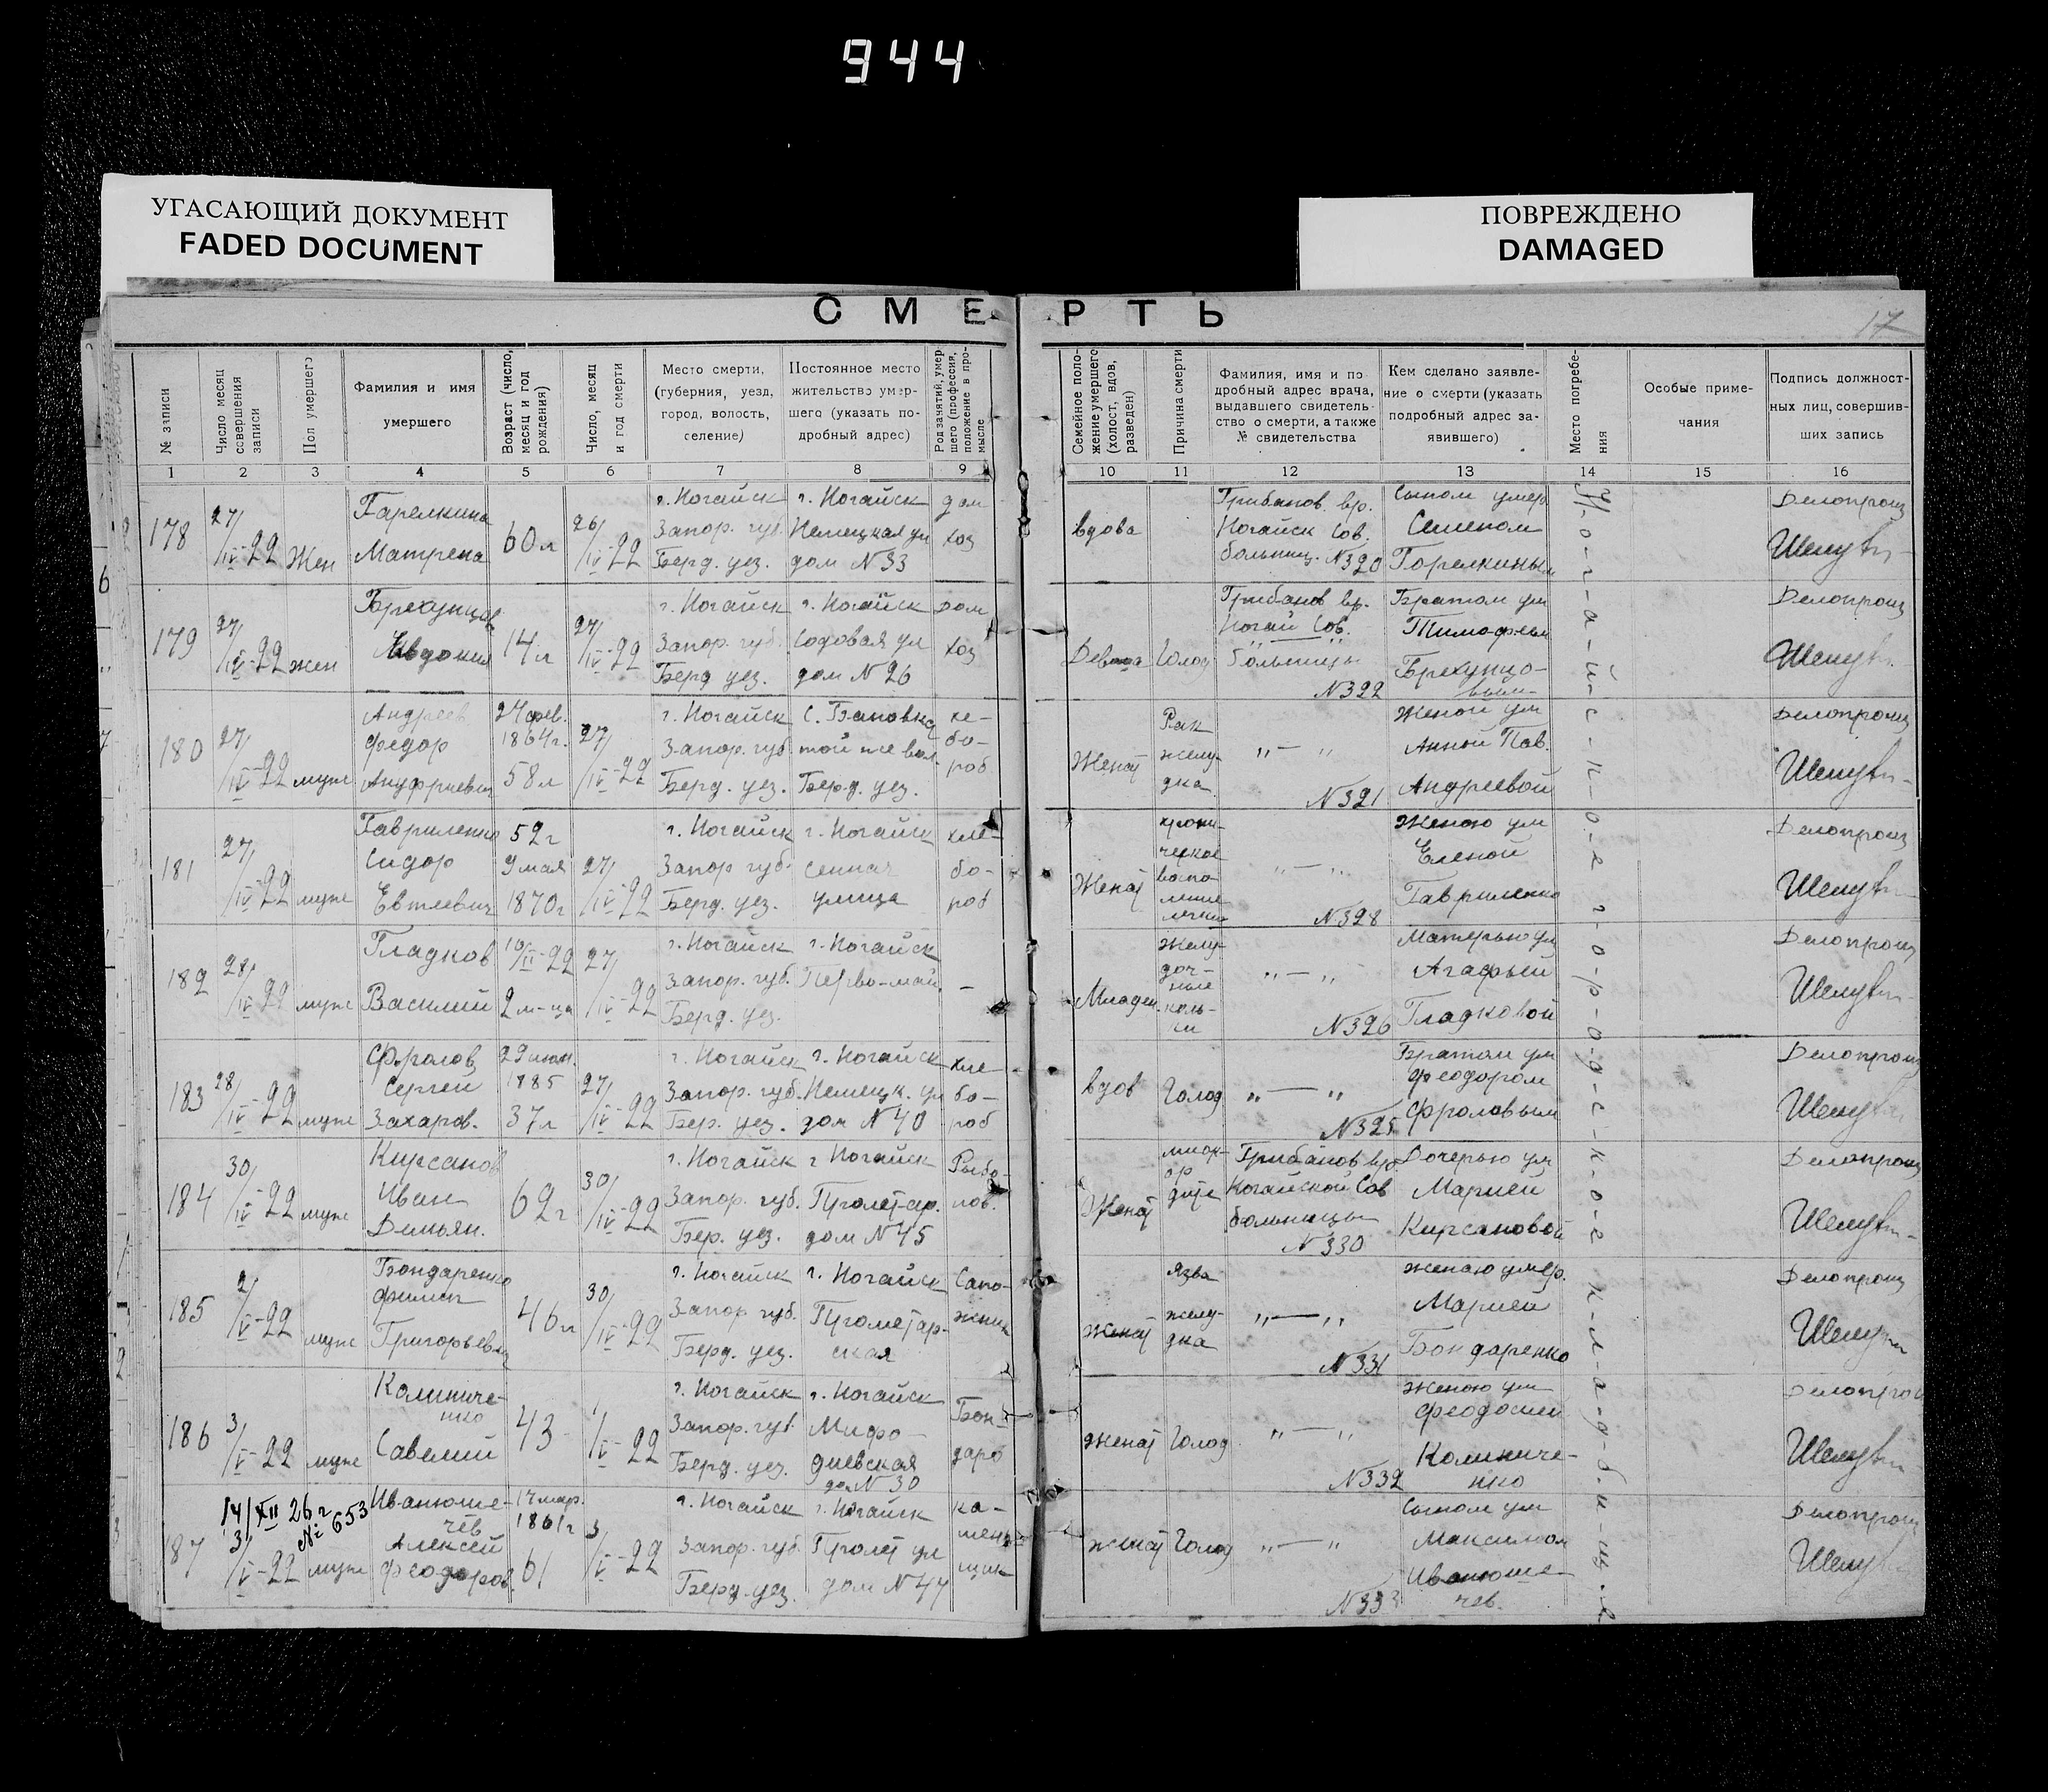 944
УГАСАЮЩИЙ ДОКУМЕНТ
FADED DOCUMENT
ПОВРЕЖДЕНО
DAMAGED
СМЕРТЬ
17
№ записи
Число месяц совершения записи
Пол умершего
Фамилия и имя умершего
Возраст (число, месяц и год рождения)
Число, месяц и год смерти
Место смерти, (губерния, уезд, город, волость, селение)
Постоянное место жительство умершего (указать подробный адрес)
Род занятий, умершего (профессия, положение в промысле
Семейное положение умершего (холост, вдов, разведен)
Причина смерти
Фамилия, имя и подробный адрес врача, выдавшего свидетельство о смерти, а также № свидетельства
Кем сделано заявление о смерти (указать подробный адрес заявившего)
Место погребения
Особые примечания
Подпись должностных лиц, совершивших запись
1 2 3 4 5 6 7 8 9 10 11 12 13 14 15 16
178 27/IV-22 Жен Гарелкина Матрена 60 л 26/IV-22 г. Ногайск Запор. губ. Берд. уез. г. Ногайск Немецкая ул дом N 33 дом хоз вдова Грибанов. вр. Ногайск Сов. больниц. N 320 Сыном умер Семеном Горелкиным Делопроиз
179 27/IV-22 жен Брехунцов Евдокия 14 л 27/IV-22 г. Ногайск Запор. губ. Берд уез. г. Ногайск Содовая ул дом N 26 дом хоз Девица Голод Грибанов вр. Ногай Сов. больницы N 322 Братом ум Тимофеем Брехунцо- вым Делопроиз
180 27/IV-22 муж Андреев Федор Ануфриевич 24 фев. 1864 г. 58 л 27/IV-22 г. Ногайск Запор. губ Берд. уез. с. Бановка той же вол. Берд. уез. хе- бо- роб Женат Рак желу- дка „ — „ N 321 Женой ум Анной Пав. Андреевой Делопроиз
181 27/IV-22 муж Гавриленко Сидор Евтеевич 52 г 9 мая 1870 г 27/IV-22 г. Ногайск Запор губ. Берд. уез. г. Ногайск Сенная улица хле- бо- роб Женат хрони- ческое воспа- ление „ — „ N 328 Женою ум Еленой Гавриленко Делопроиз
182 28/IV-22 муж Гладков Василий 10/II-22 2 м-ца 27/IV-22 г. Ногайск Запор. губ. Берд. уез. г. Ногайск Перво-май. — Младен. желу- доч- ные коли- ки „ — „ N 326 Матерью ум Агафьей Гладковой Делопроиз
183 28/IV-22 муж Фролов Сергей Захаров. 29 июн. 1885 37 л 27/IV-22 г. Ногайск Запор. губ. Бер. уез. г. Ногайск Немецк. ул дом N 40 хле- бо- роб вдов Голод „ — „ N 325 Братом ум Феодором Фроловым Делопроиз
184 30/IV-22 муж Кирсанов Иван Демьян. 62 г 30/IV-22 г. Ногайск Запор. губ. Бер. уез. г Ногайск Пролетар. дом N 45 Рыбо- лов. Женат миок- ар дите Грибанов вр. Ногайской Сов больницы N 330 Дочерью ум Марией Кирсановой Делопроиз
185 2/V-22 муж Бондаренко Филип Григорьевич 46 л 30/IV-22 г. Ногайск Запор губ. Берд. уез. г. Ногайск Пролетар- ская Сапо- жник женат язва желу- дка „ — „ N 331 женою умер. Марией Бондаренко Делопроиз
186 3/V-22 муж Калиниче- нко Савелий 43 1/V-22 г. Ногайск Запор. губ Берд. уез. г. Ногайск Мефо- диевская дом N 30 Бон- дарь женат Голод „ — „ N 332 Женою ум Феодосией Калиниче- нко Делопроиз
14/XII 26 г № 653
187 3/V-22 муж Иванюше- чев Алексей Феодоров. 17 мар. 1861 г 61 3/V-22 г. Ногайск Запор. губ. Берд. уез. г. Ногайск Пролет ул дом N 44 ка- мень щик женат Голод „ — „ N 333 Сыном ум Максимом Иванюше- чев. Делопроиз
Н-о-г-а-й-с-к-о-е г-о-р-о-д-с-к-о-е к-л-а-д-б-и-щ-е